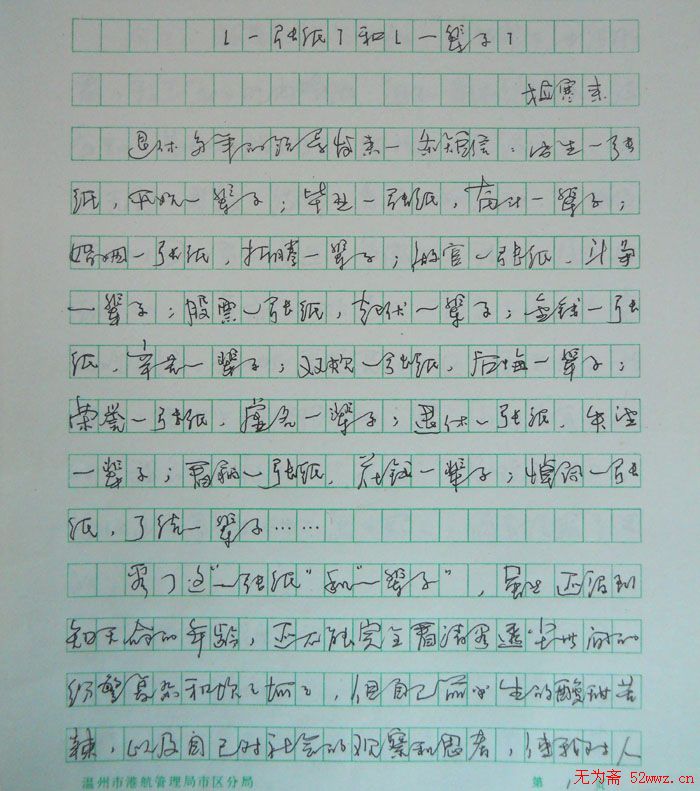 “一张纸”和“一辈子”
退休多年的领导发来一条短信：出生一张
纸，开始一辈子；毕业一张纸，奋斗一辈子；
婚姻一张纸，折腾一辈子；做官一张纸，斗争
一辈子；股票一张纸，起伏一辈子；金钱一张
纸，辛苦一辈子；双规一张纸，后悔一辈子；
荣誉一张纸，虚名一辈子；退休一张纸，失落
一辈子；看病一张纸，花钱一辈子；悼词一张
纸，了结一辈子……
看了这“一张纸”和“一辈子”，虽然还没到
知天命的年龄，还不能完全看清看透尘世间的
纷繁复杂和坎坎坷坷，但自己前半生的酸甜苦
辣，以及自己对社会的观察和思考，使我对人
温州市港航管理局市区分局 第1页
无为斋 52wwz.cn